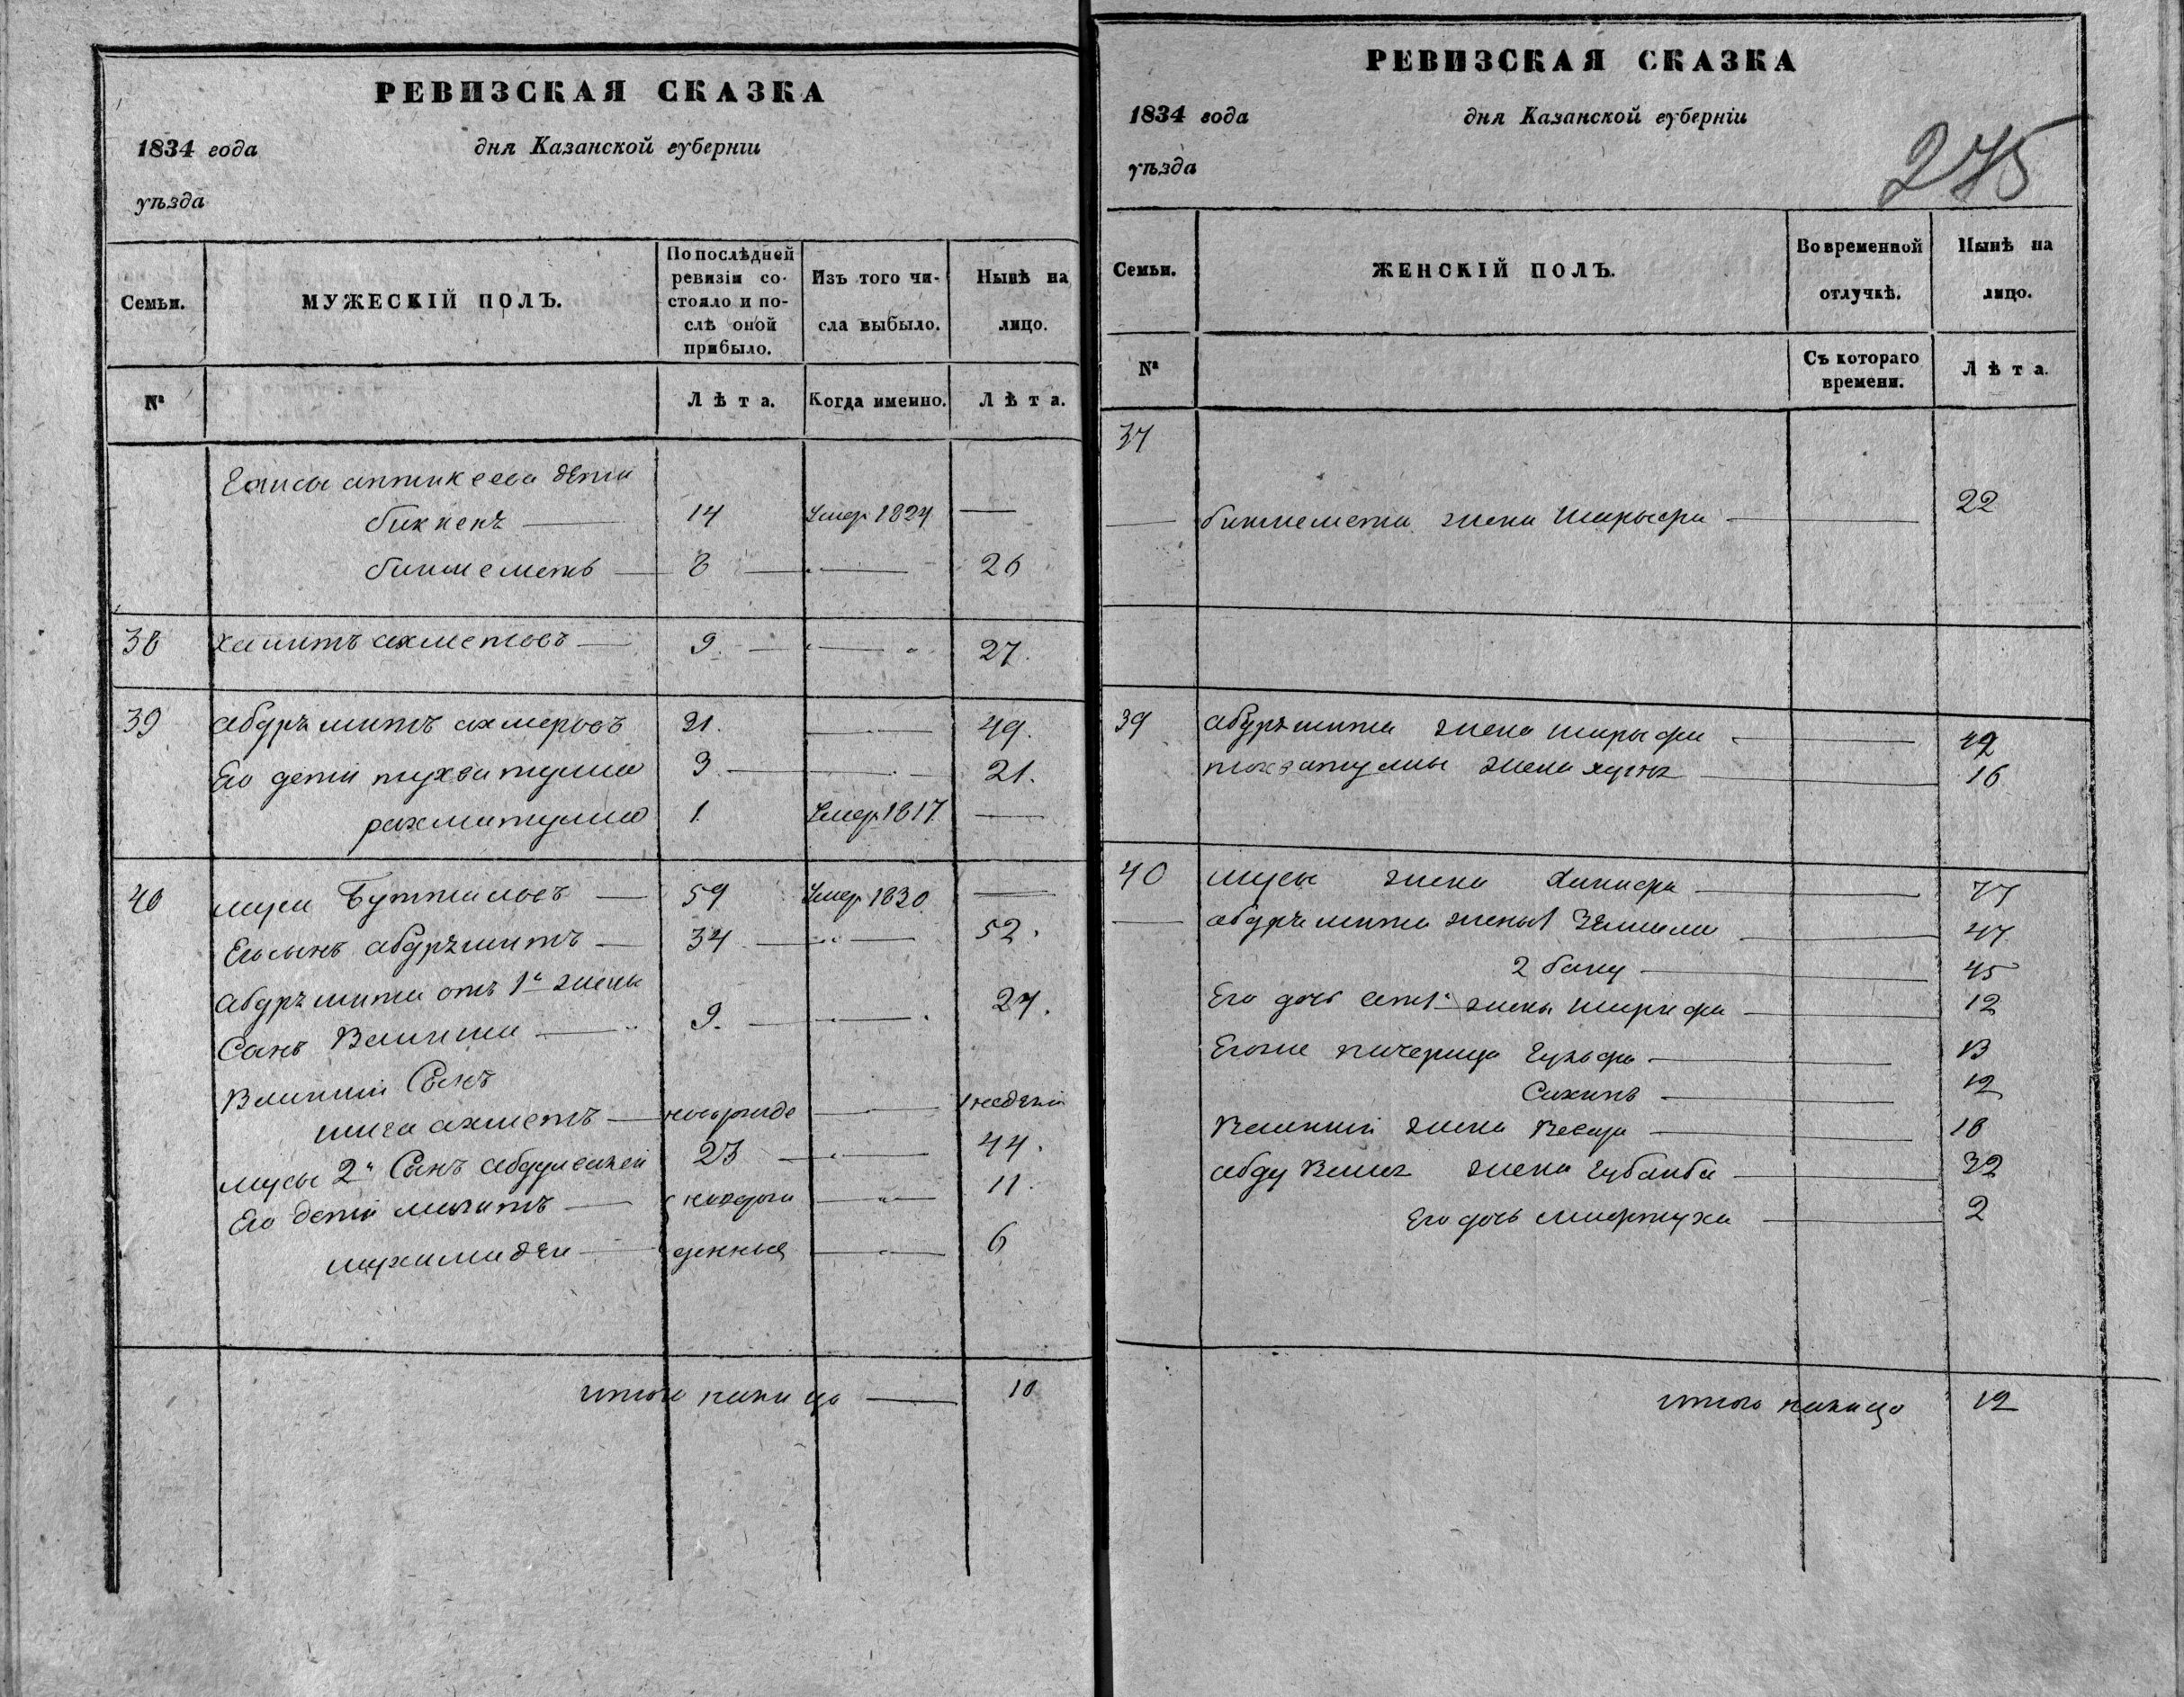 РЕВИЗСКАЯ СКАЗКА
1834 года дня Казанской губерніи
уѣзда
Семьи. МУЖЕСКІЙ ПОЛЪ. По послѣдней ревизіи со- стояло и по- слѣ оной прибыло. Изъ того чи- сла выбыло. Нынѣ на лицо.
№ Лѣта. Когда именно. Лѣта.
дѣти
биккенъ — 14 Умер 1824 —
бикмеметь — 8 — 26
38 хамитъ ахметовъ — 9. — 27.
39 абдрѣшитъ 31. — 49.
Его дети тухватулла 3 — 21.
рахматулла 1. Умер 1817 —
40 муса — 59 Умер 1830 —
Его сынъ абдрѣшитъ — 34 — 52.
абдрѣшита отъ 1й жены
Сынъ Валиша — 9. — 27.
Валиши Сынъ
мига ахметъ — новорожде — 1 недѣли
мусы 2й Сынъ 23 — 44.
Его дети — новорож — 11.
— денныя — 6
итого налицо — 10
РЕВИЗСКАЯ СКАЗКА
1834 года дня Казанской губерніи
уѣзда
275
Семьи. ЖЕНСКІЙ ПОЛЪ. Во временной отлучкѣ. Нынѣ на лицо.
№ Съ котораго времени. Лѣта.
37
бикмемета жена Шарыфа — 22
39 абдрѣшита жена шарыфа — 42
тохватуллы жена — 16
40 мусы жена Ханифа — 77
абдрѣшита жены 1 — 47
2 бану — 45
Его дочь от 1й жены шарифа — 12
Егоже гульфа — 13
— 12
Валиши жена — 18
жена — 32
Его дочь — 2
итого налицо 12